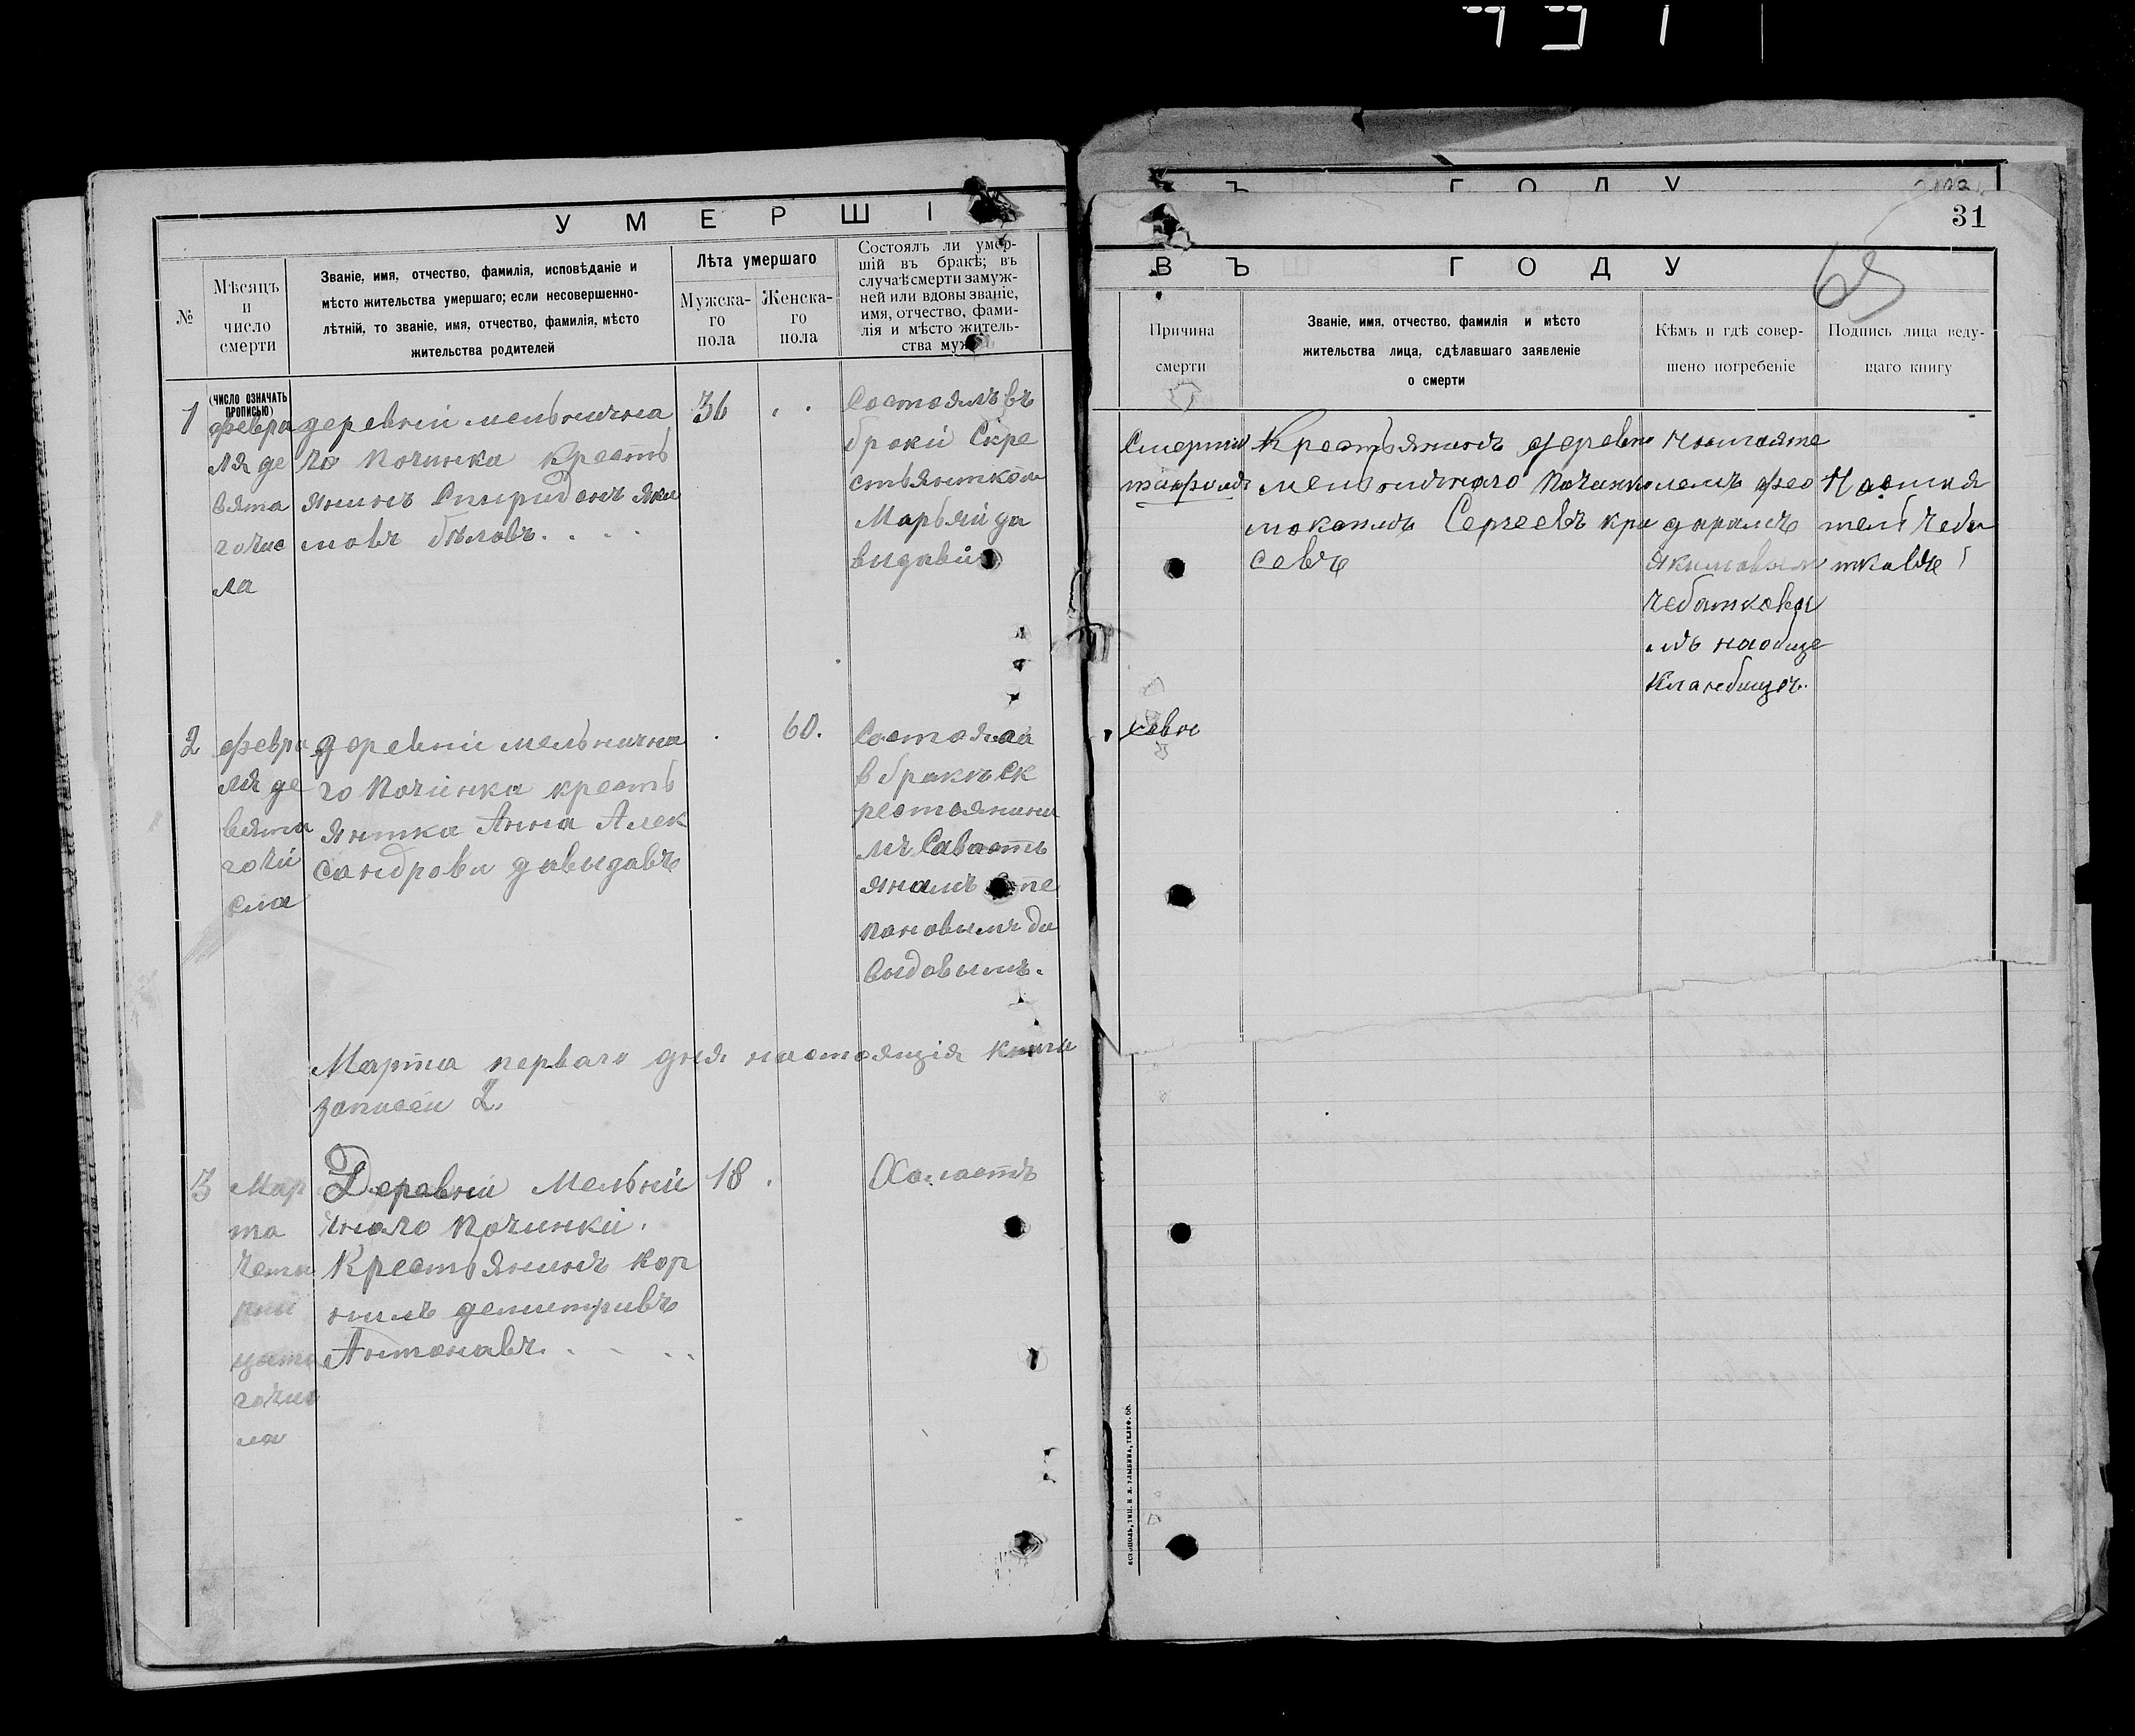 УМЕРШІ
№
Мѣсяцъ
и
число
смерти
Званіе, имя, отчество, фамилія, исповѣданіе и
мѣсто жительства умершаго; если несовершенно-
лѣтній, то званіе, имя, отчество, фамилія, мѣсто
жительства родителей
Лѣта умершаго
Мужска-
го
пола
Женска-
го
пола
Состоялъ ли умер-
шій въ бракѣ; въ
случаѣ смерти замуж-
ней или вдовы званіе,
имя, отчество, фами-
лія и мѣсто житель-
ства мужа
(число означать
прописью)
1
февра
ля де
вята
го чис
ла
деревніи мельнична
го Починка Кресть
янинъ Спиридонъ Яки
мовъ бѣловъ
36
Состоялъ въ
браки Скре
стьянткой
Марьяй да
выдавій
2
февра
ля де
вята
го чи
сла
деревніи мельнична
го Починка кресть
янтка Анна Алек
сандрова давыдавъ
60.
Состояла
в бракъ Ск
рестоянина
мъ Савасть
янамъ Сте
пановымъ да
выдовымъ.
Марта перваго дня настоящія книги
записеи 2.
3
Мар
та
четы
рна
цата
го чис
ла
Деревніи Мельни
чнаго Починкі.
Крестьянинъ Кор
нилъ демитривъ
Антонавъ.
18
Холастъ
ВЪ ГОДУ
31
ВЪ ГОДУ
65
Причина
смерти
Званіе, имя, отчество, фамилія и мѣсто
жительства лица, сдѣлавшаго заявленіе
о смерти
Кѣмъ и гдѣ совер-
шено погребеніе
Подпись лица веду-
щаго книгу
Крестьянинъ деревне
мельничнаго Починка
Сергеевъ
севъ
немъ фео
дарамъ
Якимовым
Чебатковы
мъ на обще
Кладбище.
Настая
тель Чеба
тковъ